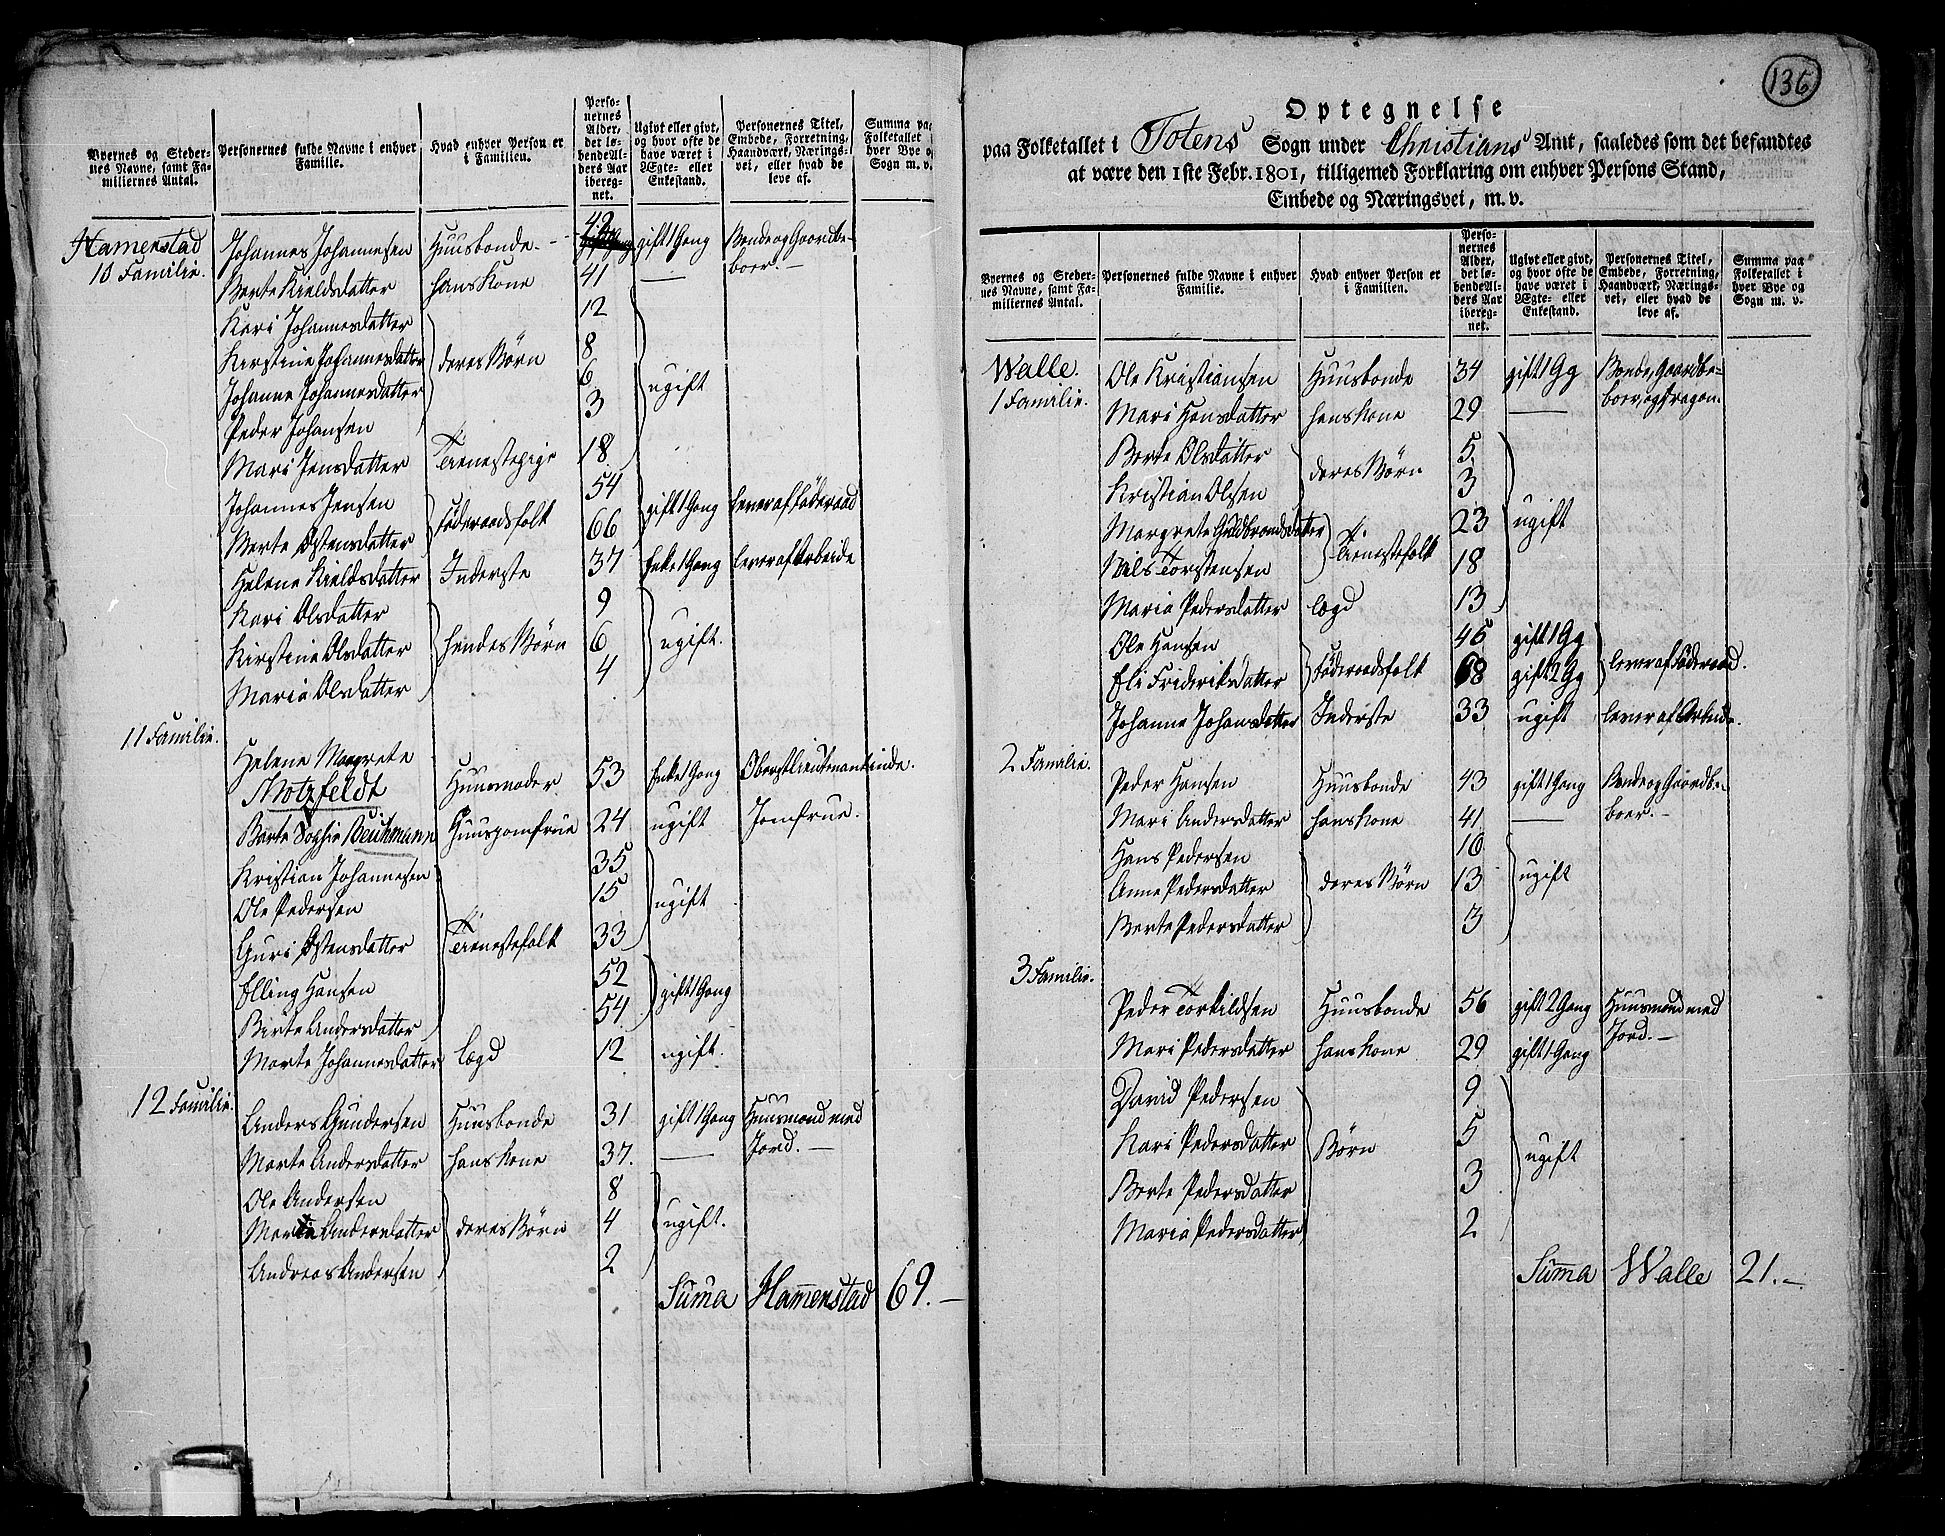 Byernes og Steder-
nes Navne, samt Fa-
miliernes Antal.
Personernes fulde Navne i enhver
Familie.
Hvad enhver Person er
i Familien.
Perso-
nernes
Alder,
det lø-
bende Al-
ders Aar
ibereg-
net.
Ugivt eller givt,
og hvor ofte de
have været i
Ægte- eller
Enkestand.
Personernes Titel,
Embede, Forretning,
Haandværk, Nærings-
vei, eller hvad de
leve af.
Summa paa
Folketallet i
hver Bye og
Sogn m. v.
Hamenstad
10 Familie.
Johannes Johannesen Huusbonde 42 gift 1 Gang Bonde og Gaardbe-
boer.
Berte Kieldsdatter hans Kone 41 —
Kari Johannesdatter 12
Kirstine Johannesdatter deres Børn 8
Johanne Johannesdatter 6 ugift
Peder Johansen 3
Mari Jensdatter Tienestepige 18
Johannes Jensen 54
Føderaadsfolk gift 1 Gang lever af Føderaad
Berte Østensdatter 66
Helene Kieldsdatter Inderste 37 Enke 1 Gang lever af Arbeide
Kari Olsdatter 9
Kirstine Olsdatter hendes Børn 6 ugift.
Maria Olsdatter 4
11 Familie.
Helene Margrete
Motzfeldt Huusmoder 53 Enke 1 Gang Oberstlieutenantinde.
Berte Sophie Beichmann Huusjomfrue 24 ugift Jomfrue.
Kristian Johannesen 35
Ole Pedersen 15 ugift
Guri Østensdatter Tienestefolk 33
Elling Hansen 52
gift 1 Gang
Birte Andersdatter 54
Marte Johannesdatter lægd 12 ugift.
12 Familie.
Anders Gundersen Huusbonde 31 gift 1 Gang Huusmand med
Jord.
Marte Andersdatter hans Kone 37. —
Ole Andersen 8
Andersdatter deres Børn 4 ugift.
Andreas Andersen 2
Suma Hamenstad 69.
136
Optegnelse
paa Folketallet i Totens Sogn under Christians Amt, saaledes som det befandtes
at være den 1ste Febr. 1801, tilligemed Forklaring om enhver Persons Stand,
Embede og Næringsvei, m. v.
Byernes og Steder-
nes Navne, samt Fa-
miliernes Antal.
Personernes fulde Navne i enhver
Familie.
Hvad enhver Person er
i Familien.
Perso-
nernes
Alder,
det lø-
bende Al-
ders Aar
ibereg-
net.
Ugivt eller givt,
og hvor ofte de
have været i
Ægte- eller
Enkestand.
Personernes Titel,
Embede, Forretning,
Haandværk, Nærings-
vei, eller hvad de
leve af.
Summa paa
Folketallet i
hver Bye og
Sogn m. v.
Walle.
1 Familie.
Ole Kristiansen Huusbonde 34 gift 1 Gg Bonde, Gaardbe-
boer, og Dragon.
Mari Hansdatter hans Kone 29 —
Berte Olsdatter 5
deres Børn
Kristian Olsen 3
Margrete Guldbrandsdatter 23 ugift
Tienestefolk
Nils Torstensen 18
Maria Pedersdatter lægd 13
Ole Hansen 45 gift 1 Gg
Føderaadsfolk lever af Føderaad.
Eli Frideriksdatter 68 gift 2 Gg
Johanne Johansdatter Inderste 33 ugift lever af Arbeide.
2 Familie.
Peder Hansen Huusbonde 43 gift 1 Gang Bonde og Gaardbe-
boer.
Mari Andersdatter hans Kone 41 —
Hans Pedersen 16
Anne Pedersdatter deres Børn 13 ugift
Berte Pedersdatter 3
3 Familie.
Peder Torkildsen Huusbonde 56 gift 2 Gang Huusmand med
Jord.
Mari Pedersdatter hans Kone 29 gift 1 Gang
David Pedersen 9
Kari Pedersdatter 5
Børn ugift
Berte Pedersdatter 3
Maria Pedersdatter 2
Suma Walle 21.